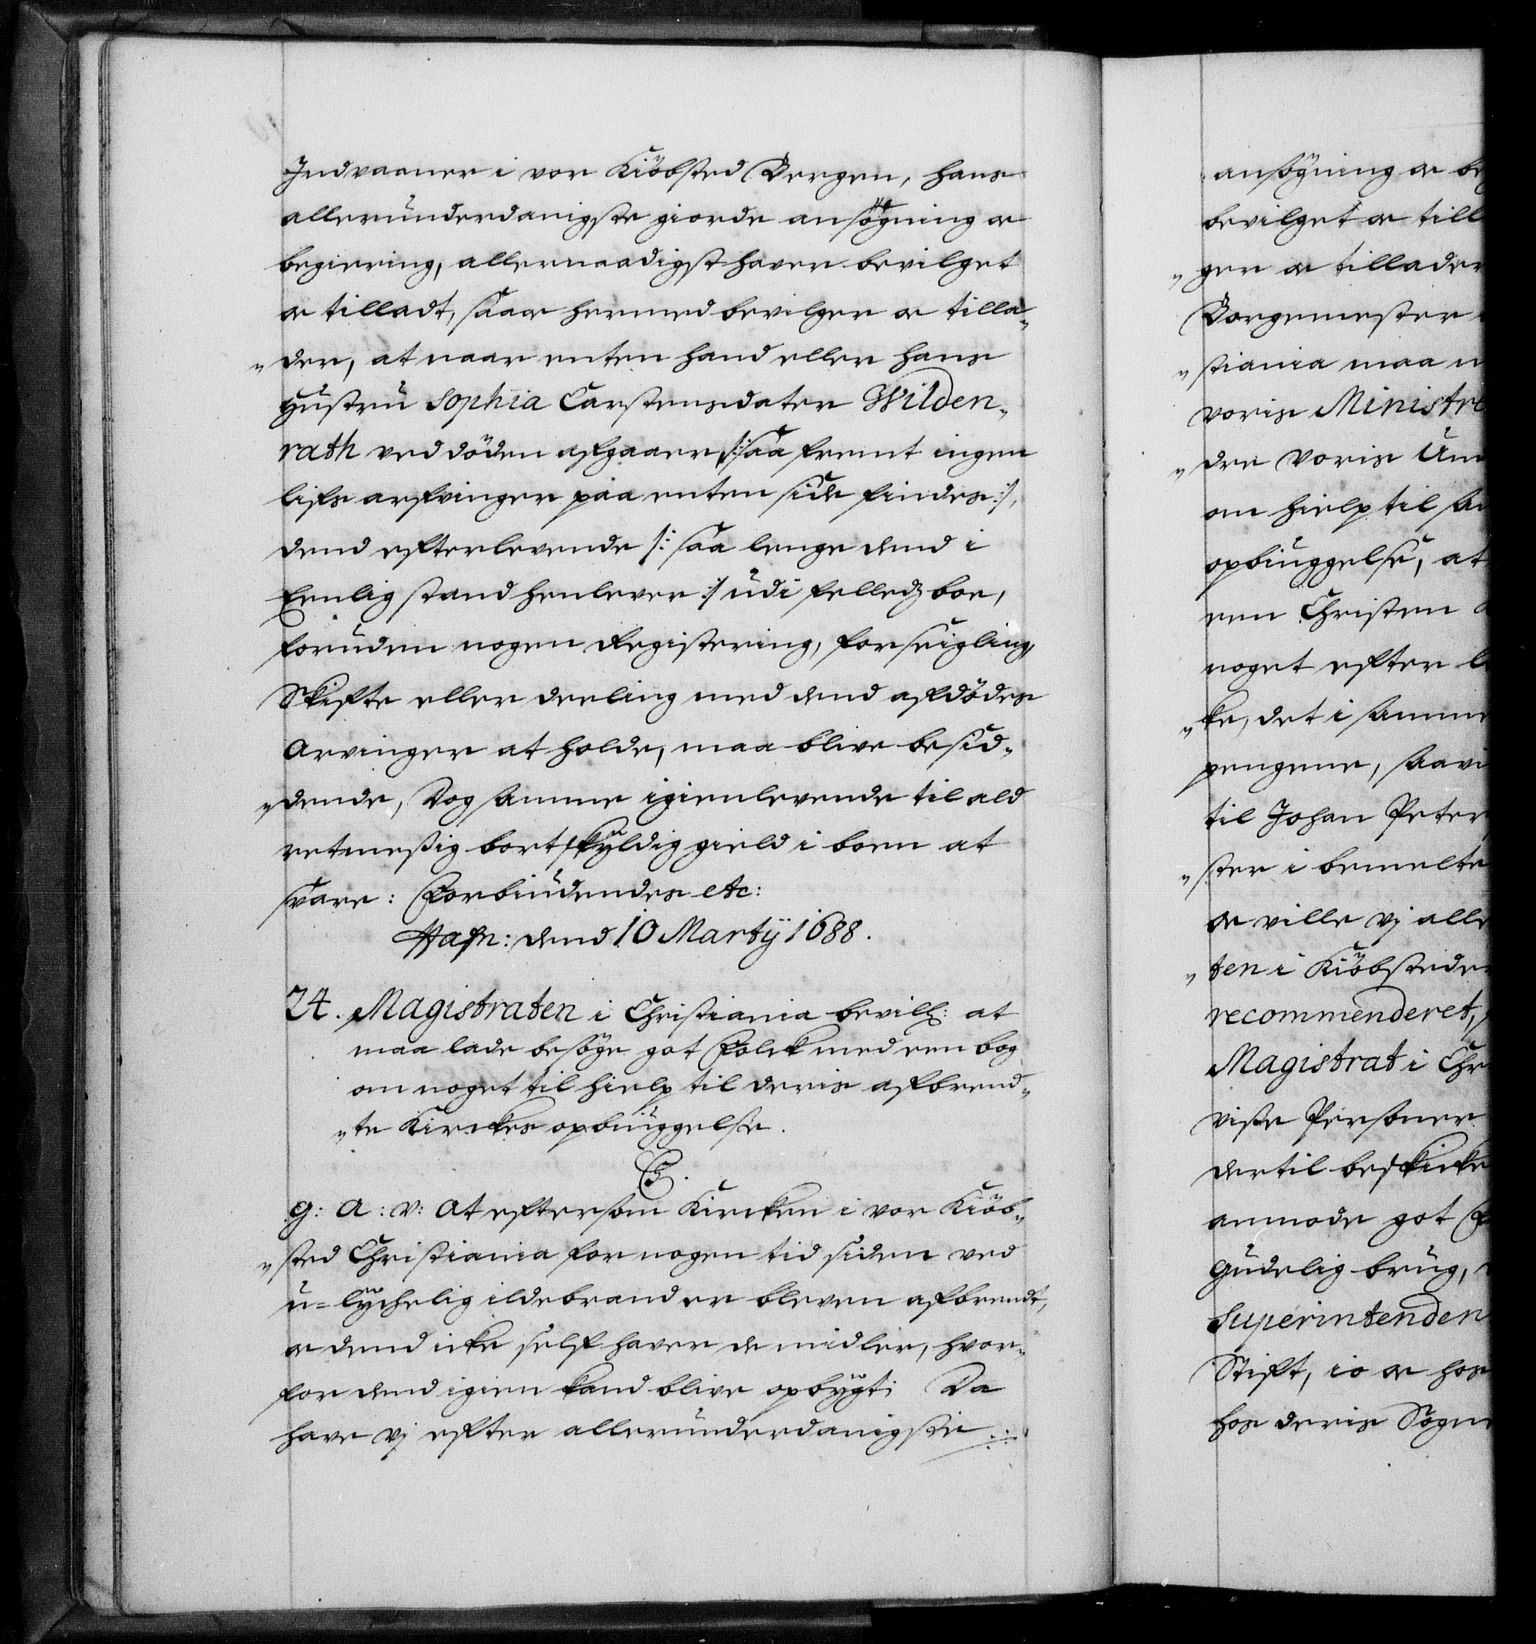 Indvaaner i vor Kiöbsted Bergen, hans
allerunderdanigste giorde ansögning oc
begiering, allernaadigst haver bevilget
oc tilladt, saa oc hermed bevilger oc tilla„
„der, at naar enten hand eller hans
hustru Sophia Carstensdater Wilden„
rath ved döden afgaaer /: saa fremt ingen
lifs arfvinger paa enten side findes :/,
dend efterlevende /: saa lenge dend i
Eenlig stand henlever :/ udi felleds boe,
foruden nogen Registering, forseigling,
Skifte eller deeling med dend afdödes
Arvinger at holde, maa blive besid„
„dende, Dog samme igienlevende til ald
retmessig bortskyldig gield i boen at
svare: Forbiudendes etc:
Hafn: dend 10 Martÿ 1688.
24. Magistraten i Christiania bevilh: at
maa lade besöge got Folck med een bog
om noget til hielp til deris afbrend„
„te Kirckes opbiuggelse.
C5.
G: A: V: At eftersom Kircken i vor Kiöb„
„sted Christiania for nogen tid siden ved
u=lÿchelig ildebrand er bleven afbrendt,
oc dend icke self haver de midler, hvor„
for dend igien kand blive opbÿgt; Da
have vj efter allerunderdanigste
ansögning oc be
bevilget oc till
„ger oc tillader
Borgemester
„stiania maa
voris Ministre
„dre voris
om hielp til
opbiuggelse, at
een Christen
noget efter
„ke, det i samme
pengene, saavi
til Johan Peter
„ster i bemelte
oc ville vj alle
„ten i Kiöbstede
recommenderet,
Magistrat i Chr
visse Personer
dertil beskicke
anmode got
Gudelig brug,
Superintenden
Stift, io oc hos
hos deris Sogne